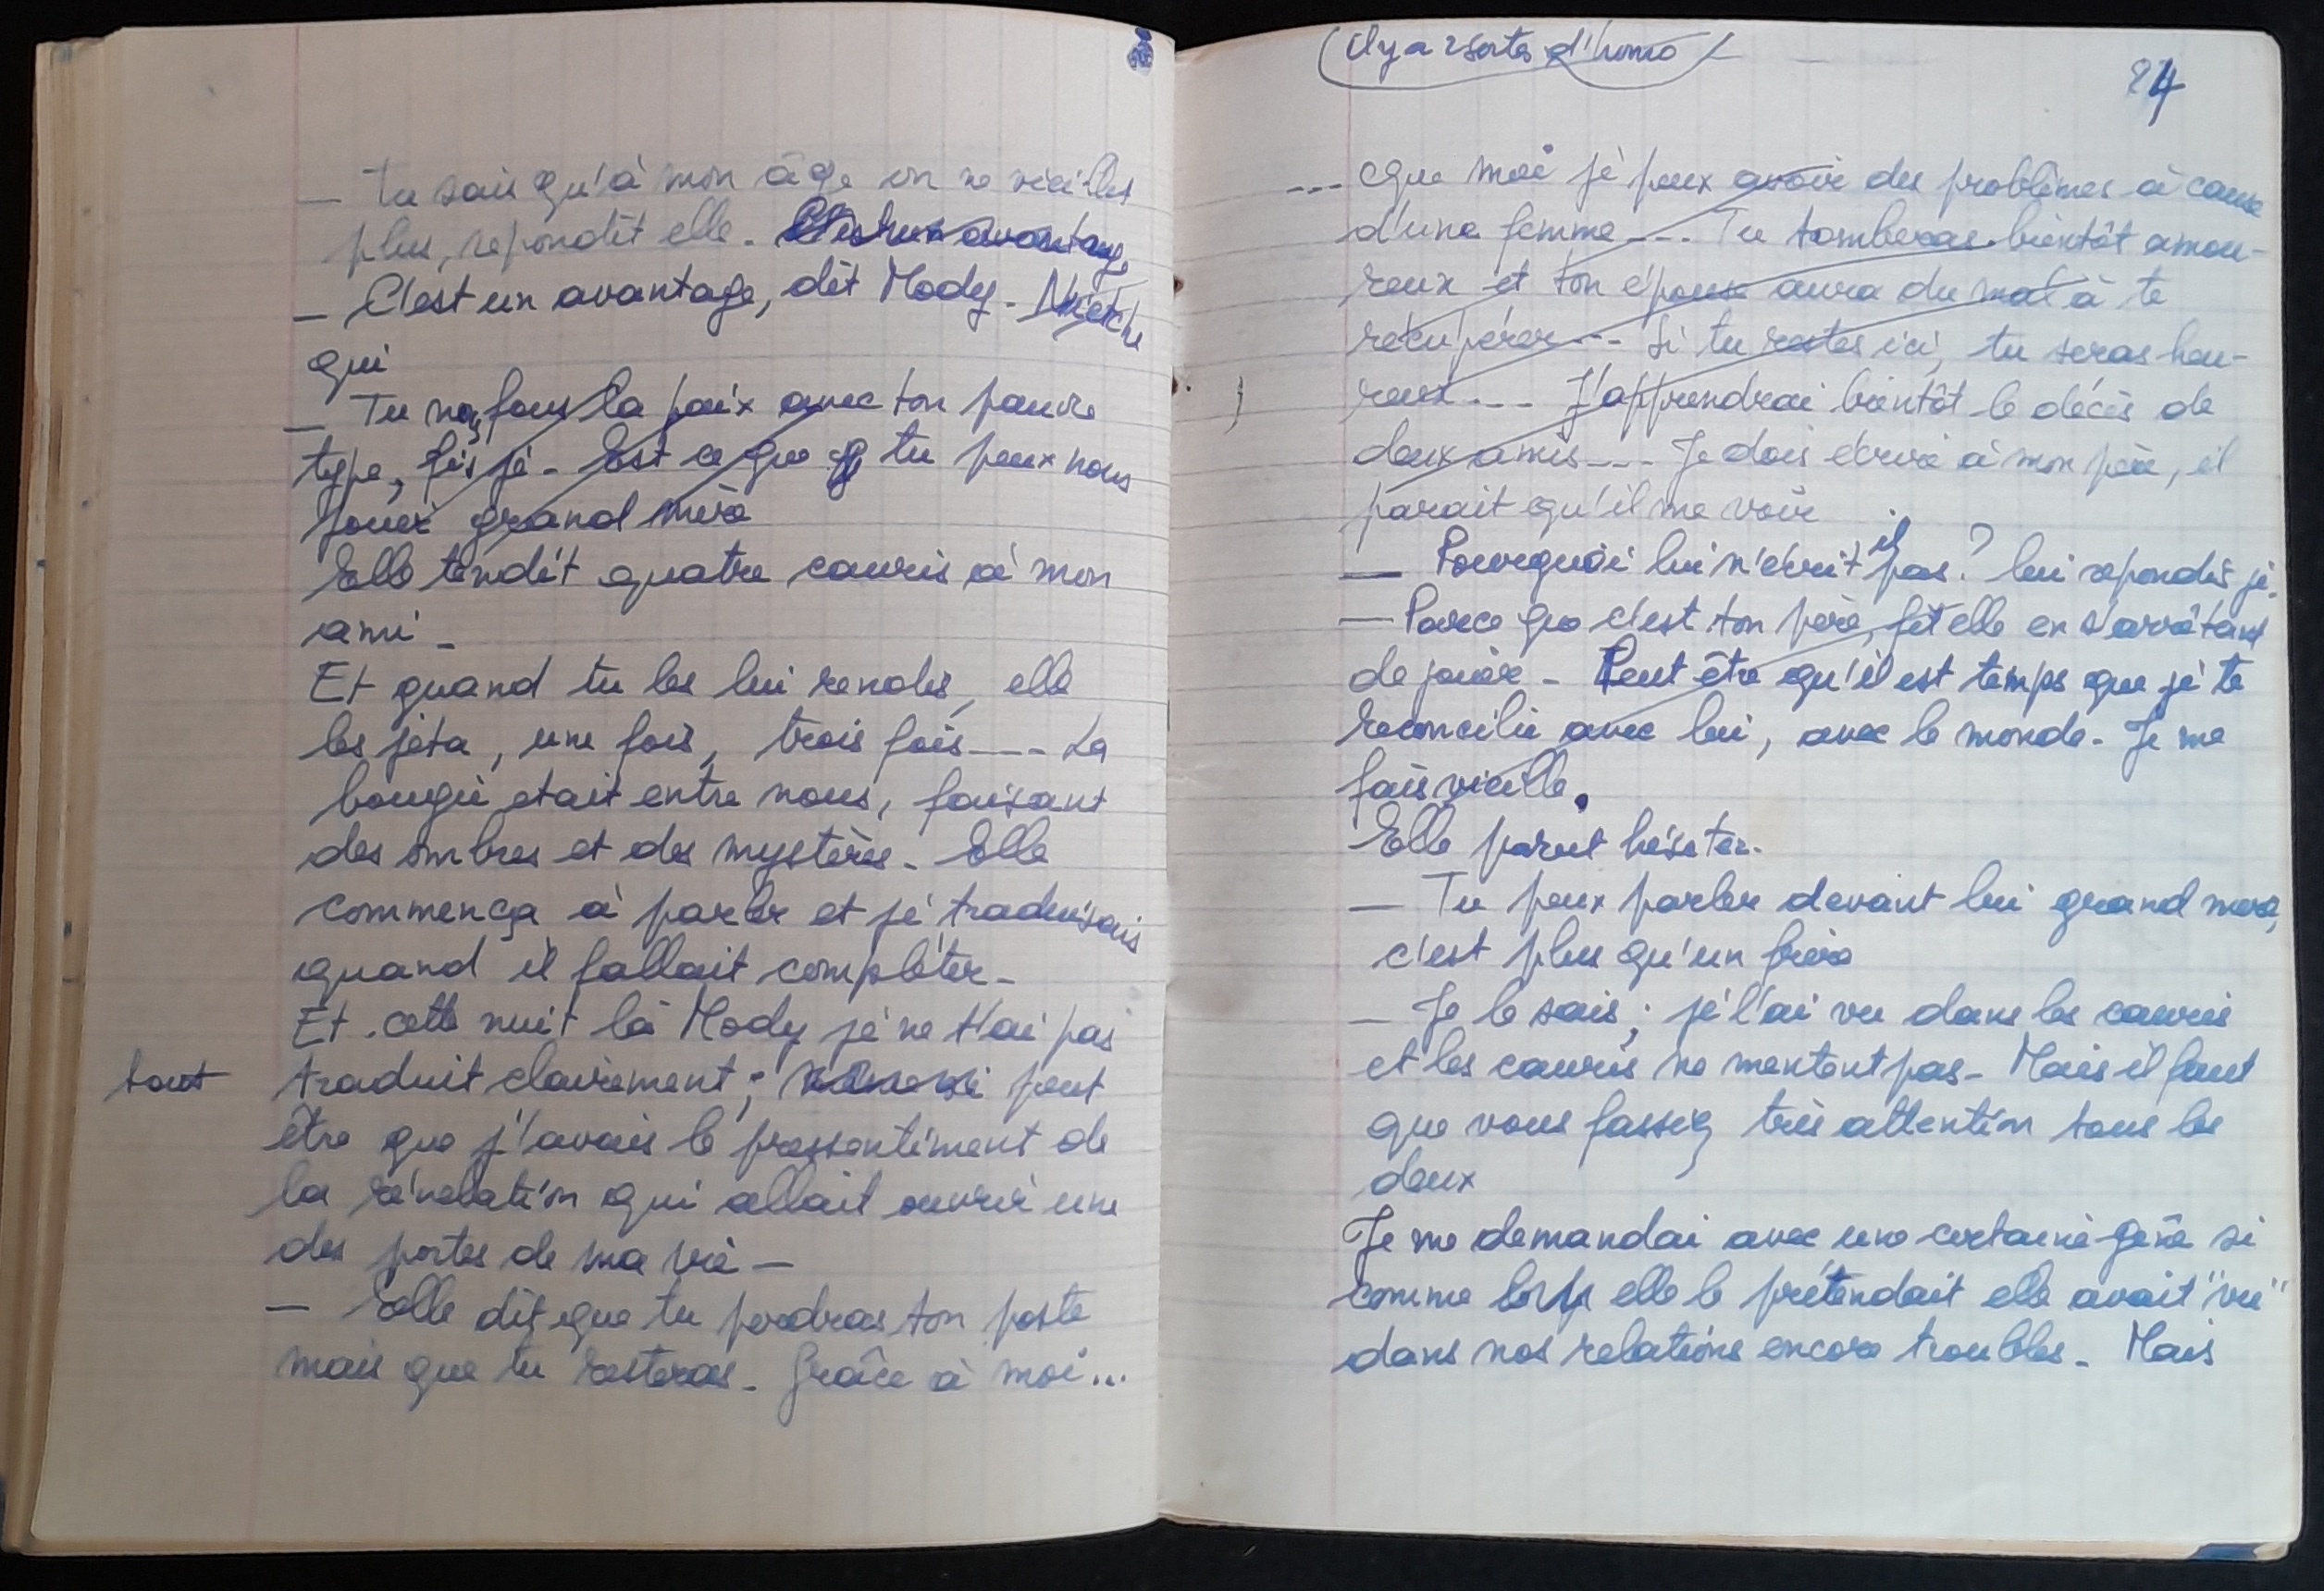 — Tu sais qu'à mon âge on ne vieillit
plus, repondit elle. C'est un avantage
— C'est un avantage, dit Mody -
qui
— Tu nous fous la paix avec ton pauvre
type, fis je - Est ce que tu peux nous
jouer grand mère
Elle tendit quatre cauris à mon
ami -
Et quand tu les lui rendis, elle
les jeta, une fois, trois fois --- La
bougie etait entre nous, faisant
des ombres et des mystères - Elle
commença à parler et je traduisais
quand il fallait compléter -
Et cette nuit là Mody je ne t'ai pas
tout traduit clairement ; peut
être que j'avais le pressentiment de
la révélation qui allait ouvrir une
des portes de ma vie —
— Elle dit que tu perdras ton poste
mais que tu resteras - Grâce à moi...
Il y a 2 sortes d'homo
84
--- que moi je peux avoir des problèmes à cause
d'une femme --- Tu tomberas bientôt amou-
reux et ton épouse aura du mal à te
récupérer --- Si tu restes ici, tu seras heu-
reux --- J'apprendrai bientôt le décès de
deux amis --- Je dois écrire à mon père, il
parait qu'il me voir
— Pourquoi lui n'écrit il pas ? lui repondis je.
— Parce que c'est ton père, fit elle en s'arrêtant
de jouer - Peut être qu'il est temps que je te
reconcilie avec lui, avec le monde - Je me
fais vieille.
Elle parut hésiter.
— Tu peux parler devant lui grand mere,
c'est plus qu'un frère
— Je le sais ; je l'ai vu dans les cauris
et les cauris ne mentent pas - Mais il faut
que vous fassiez très attention tous les
deux
Je me demandai avec une certaine gêne si
comme elle le prétendait elle avait "vu"
dans nos relations encore troubles - Mais